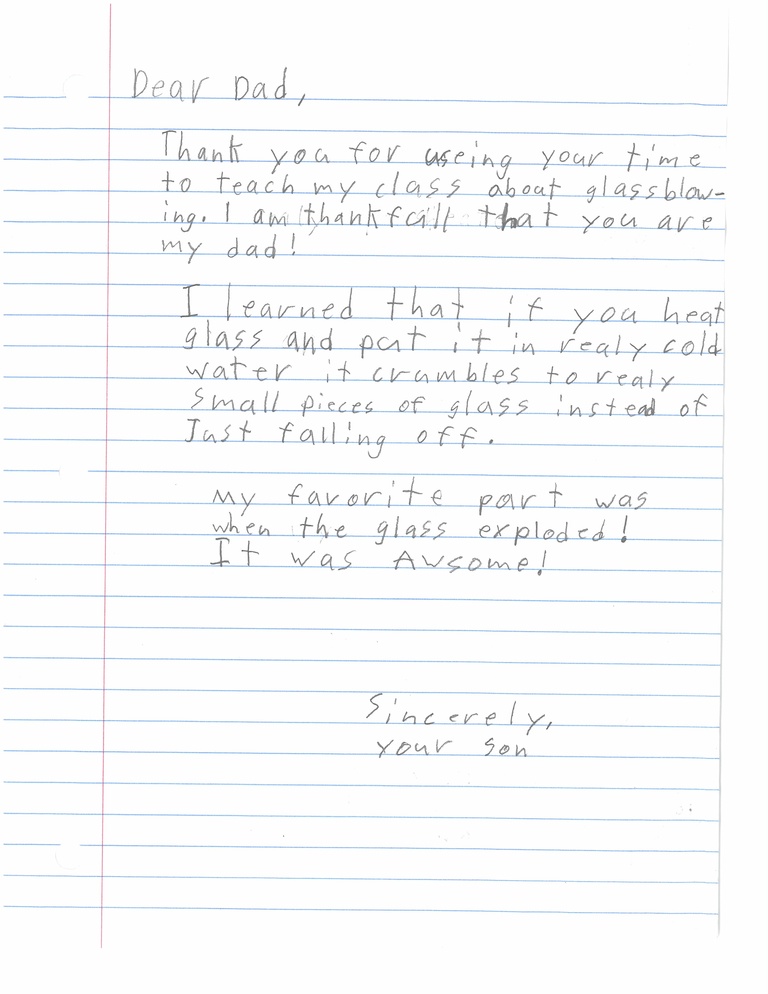 Dear Dad,
Thank you for useing your time
to teach my class about glassblow-
ing. I am thankfull that you are
my dad!
I learned that if you heat
glass and put it in realy cold
water it crumbles to realy
small pieces of glass instead of
Just falling off.
My favorite part was
when the glass exploded!
It was Awsome!
Sincerely,
your son